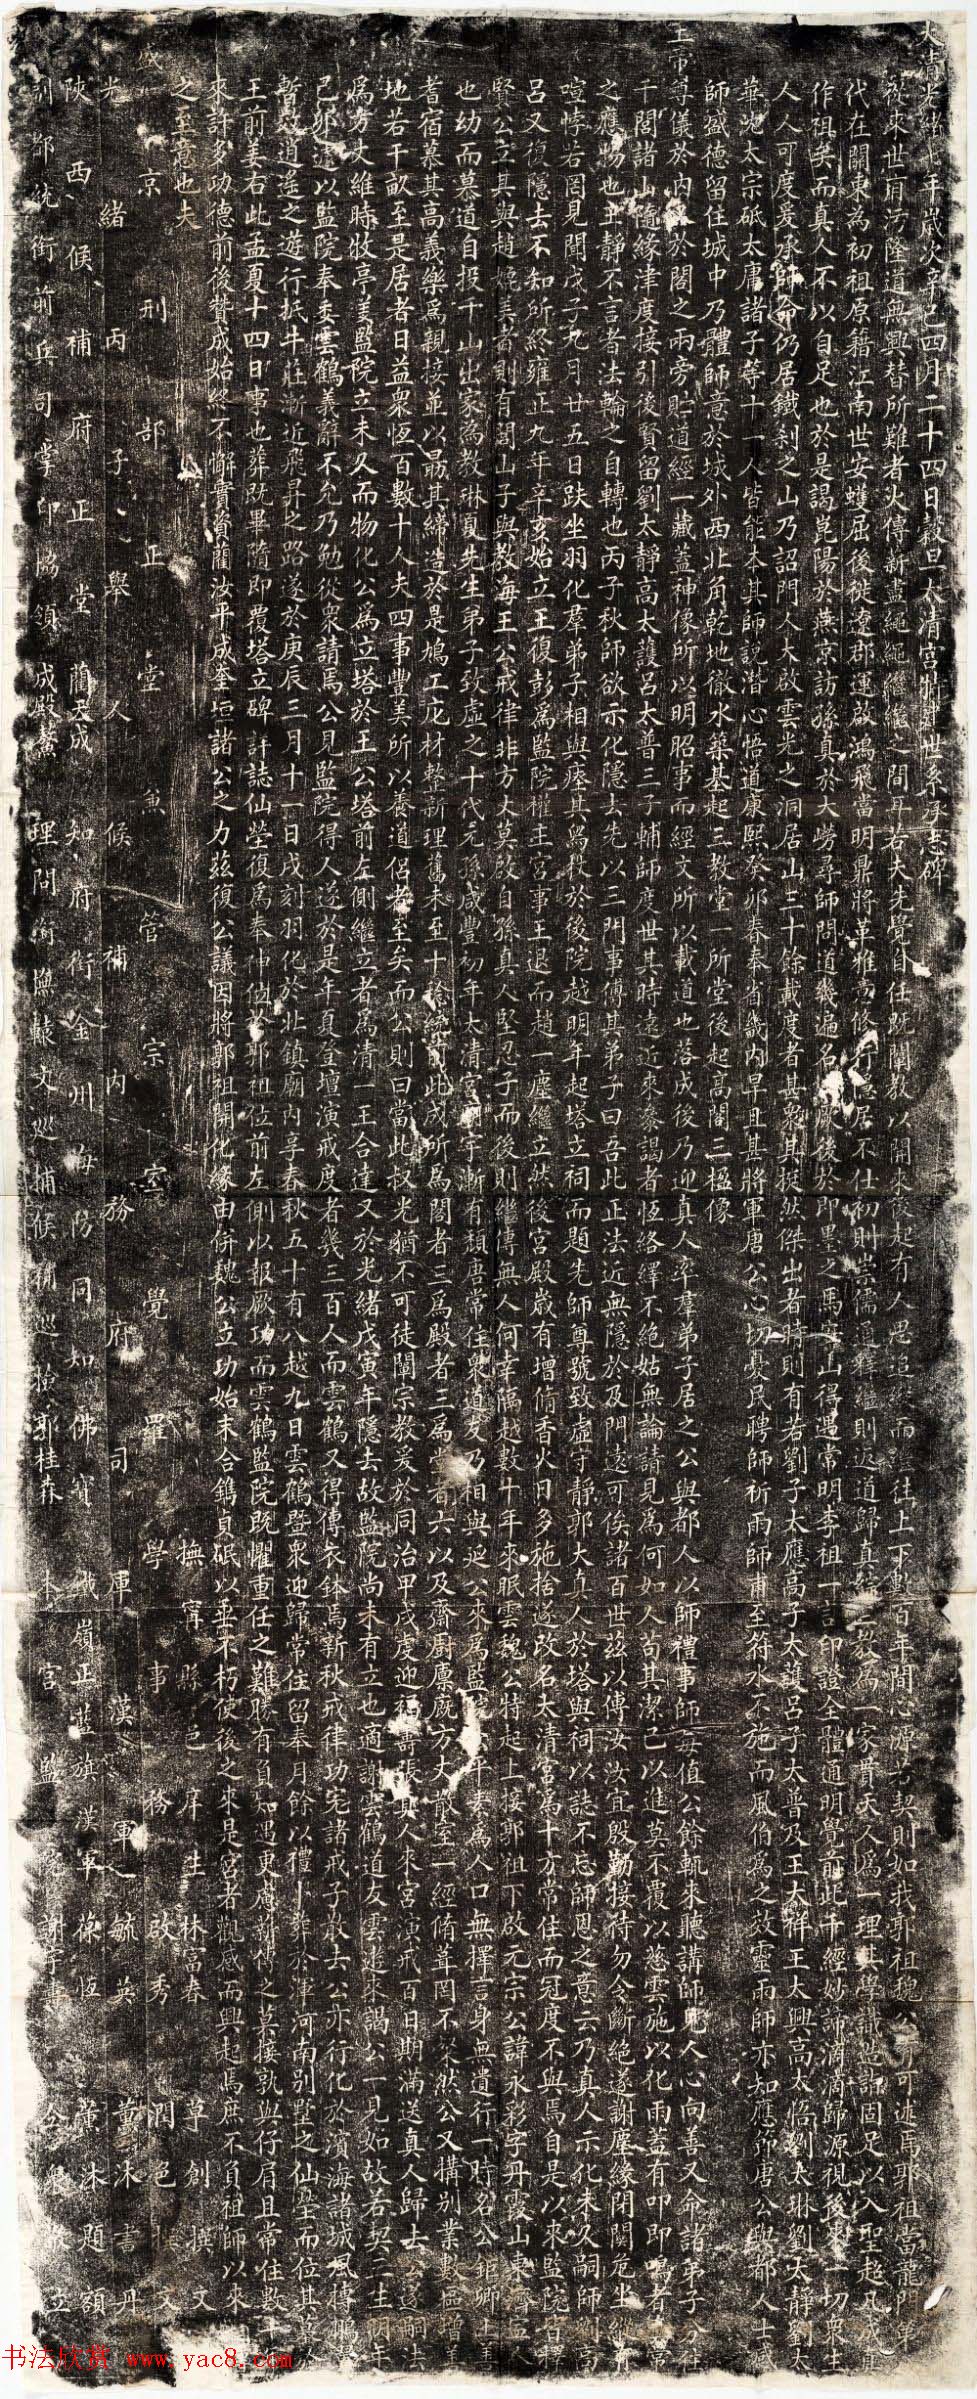 大清光緒七年歲次辛巳四月二十四日穀旦太清宮
從來世有汚隆道無興替所難者火傳薪盡繩繩繼繼之間耳若夫先覺自任既闡教以開來後起有人思追 而 往上下數百年間心源若契則如我郭祖魏公 可述焉郭祖當龍門
代在關東為初祖原籍江南世安蠖屈後徙遼郡運啟鴻飛當明鼎將革雅 修行隱居不仕初則崇儒 釋繼則返道歸真 教為一家貫天人為一理其學識造詣固足以入聖超凡
作祖矣而真人不以自足也於是謁崑陽於燕京訪孫真於大嶗尋師問道幾遍名 後於即墨之馬鞍山得遇常明李祖一言印證全體通明覺前此千經妙諦滴滴歸源視後來一切眾生
人人可度爰承師命仍居鐵剎之山乃詔門人大啟雲光之洞居山三十餘載度者甚眾其挺然傑出者時則有若劉子太應高子太護呂子太普及王太祥王太興高太悟劉太琳劉太靜劉太
華沈太宗砥太庸諸子等十一人皆能本其師說潛心悟道康熙癸卯春奉省畿內旱甚將軍唐公心切憂民聘師祈雨師甫至符水不施而風伯為之放靈雨師亦知應節唐公與都人士
師盛德留住城中乃體師意於城外西北角乾地徹水築基起三教堂一所堂後起高閣三楹像
王帝尊儀於內 於閣之兩旁貯道經一藏蓋神像所以明昭事而經文所以載道也落成後乃迎真人率羣弟子居之公與都人以師禮事師每值公餘輒來聽講師見人心向善又命諸弟子分住
千閣諸山隨緣津度接引後賢留劉太靜高太護呂太普三子輔師度世其時遠近來參謁者恆絡繹不絕姑無論請見為何如人苟其潔己以進莫不覆以慈雲施以化雨蓋有叩即鳴者
之應 也 靜不言者法輪之自轉也丙子秋師欲示化隱去先以三門事傳其弟子曰吾此正法近無隱於及門遠可俟諸百世茲以傳汝汝宜殷勤接待勿令斷絕遂謝塵緣閉關危坐
喧悖若罔見聞戊子九月廿五日趺坐羽化羣弟子相與瘞其為 於後院越明年起塔立祠而題先師尊號致虛守靜郭大真人於塔與祠以誌不忘師恩之意云乃真人示化未久嗣師
呂又復隱去不知所終雍正九年辛亥始立王復彭為監院權主宮事王退而趙一塵繼立然後宮殿歲有增脩香火日多施捨遂改名太清宮為十方常住而冠度不與焉自是以來監院皆
賢公立其與趙媲美者則有閭山子與教海王公戒律非方丈莫啟自孫真人堅忍子而後則繼傳無人何幸隔越數十年來眠雲魏公特起上接郭祖下啟元宗公諱永彩字丹霞山東
也幼而慕道自投千山出家為教琳夏先生弟子致虛之十代元孫咸豐初年太清宮 宇漸有頹唐常住眾道友乃相與延公來為監院 平素為人口無擇言身無遺行一時名公鉅卿
耆宿慕其高義樂為親接並以勗其締造於是鳩工庀材整新理舊未至十餘 此成所為閣者三為殿者三為 者六以及齋廚廪廐方丈散室一經脩葺罔不粲然公又搆別業數區增
地若干畝至是居者日益眾恆百數十人夫四事豐美所以養道侶者至矣而公則曰當此 光猶不可徒闡宗教爰於同治甲戌虔迎福壽張真人來宮演戒百日期滿送真人歸去 遂嗣法
為方丈維時牧亭姜監院立未久而物化公為立塔於王公塔前左側繼立者為清一王合達又於光緒戊寅年隱去故監院尚未有立也適謝雲鶴道友雲遊來謁公一見如故若契三生明年
己卯遂以監院奉委雲鶴義辭不允乃勉從眾請焉公見監院得人遂於是年夏登壇演戒度者幾三百人而雲鶴又得傳衣鉢焉新秋戒律功完諸戒子散去公亦行化於濱海諸城風摶
暫效逍遙之遊行抵牛莊漸近飛昇之路遂於庚辰三月十一日戌刻羽化於北鎮廟內享春秋五十有八越九日雲鶴暨眾迎歸常住留奉月餘以禮卜葬於渾河南別墅之仙塋而位其
王前姜右此孟夏十四日事也葬既畢隨即覆塔立碑計誌仙塋復為奉仲位於郭祖位前左側以報厥功而雲鶴監院既懼重任之難勝有負知遇更慮薪傳之莫接孰與仔肩且常住數 年
來許多功德前後贊成始終不懈實資藺汝平成奎垣諸公之力茲復公議因將郭祖開化緣由併魏公立功始末合鐫貞珉以垂不朽使後之來是宮者觀感而興起焉庶不負祖師以來
之至意也夫
撫寧縣邑庠生林富春草創撰文
盛京刑部正堂兼管宗室覺羅學事務啟秀潤色撰文
光緒丙子舉人候補內務府司庫漢軍 毓英薰沐書丹
陝西候補府正堂藺天成知府銜金州海防同知佛寶 城嶺正藍旗漢軍 恆薰沐題額
副都統銜前兵司掌印協領成殿鰲 理問銜 轅文巡捕候補巡檢郭桂森本宮監 謝 合 敬立
书法欣赏 www.yac8.com